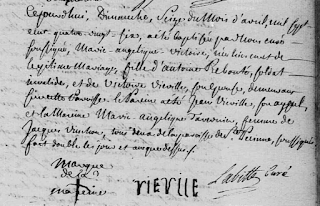 Cejourd'hui, Dimanche, Seize du mois d'avril, mil sept
cent quatre vingt six, a été baptisée par Nous curé
soussigné, Marie angelique Victoire, née hier de
légitime mariage, fille d'antoine soldat
invalides, et de Victoire Vieville, son épouse, demeurans
sur cette Paroisse. Le Parein a été Jean Vieville, son ayeul,
et la Mareine Marie angelique femme de
Jacques tous deux de la paroisse de soussignés
fait double les jour et an que dessus.
Marque
de la
mareine
VIEVILLE
Labitte Curé